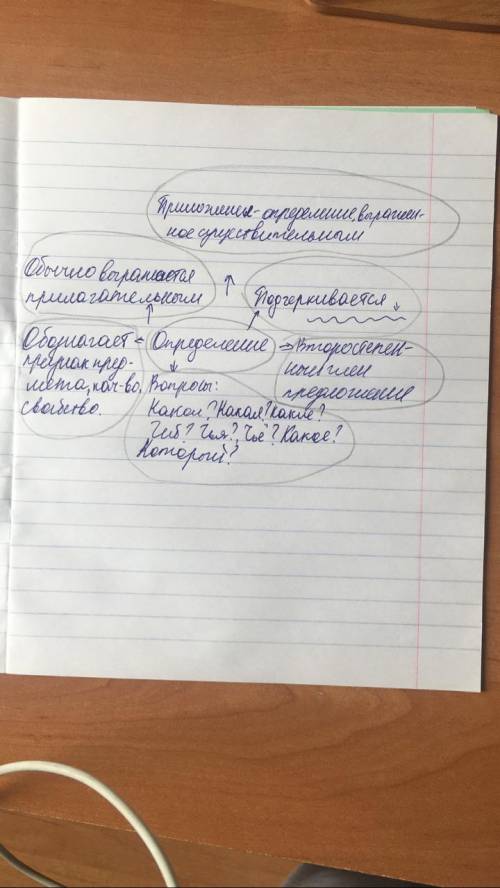 Приложение - определение, выражен-
ное существительным
Обычно выражается
прилагательным
Подчеркивается
Обозначает
признак пред-
мета, кач-во,
свойство.
Определение
Второстепен-
ный член
предложения
Вопросы:
Какой? Какая? Какие?
Чей? Чья? Чьё? Какое?
Который?